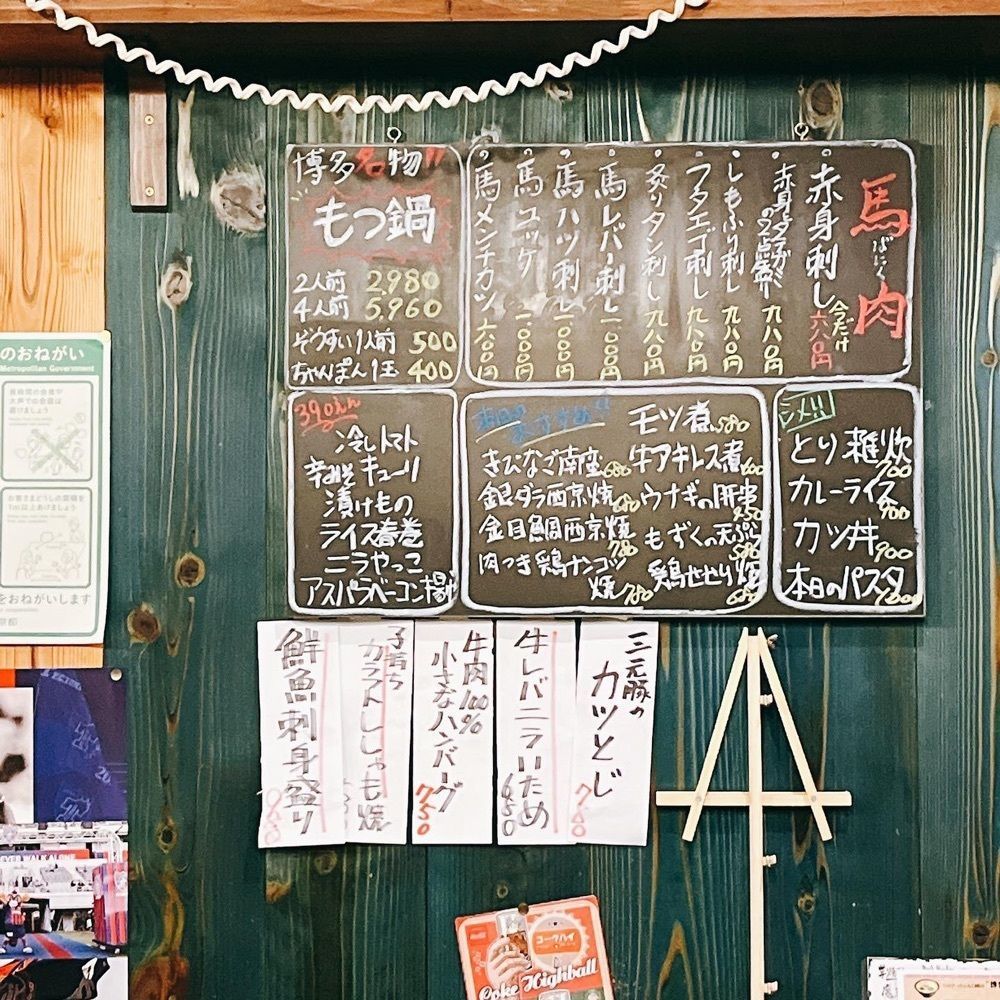 博多名物!!
もつ鍋
2人前 2,980
4人前 5,960
ぞうすい1人前 500
ちゃんぽん1玉 400
馬肉
ばにく
赤身刺し 今だけ 六八〇円
の2点盛 九八〇円
しもふり刺し 九八〇円
フタエゴ刺し 九八〇円
炙りタン刺し 九八〇円
馬レバー刺し 一、〇〇〇円
馬ハツ刺し 一〇〇〇円
馬ユッケ 一〇〇〇円
馬メンチカツ 六八〇円
390えん
冷しトマト
辛みそキューリ
漬けもの
ライス春巻
ニラやっこ
アスパラベーコン揚げ
本日のおすすめ!!
モツ煮 580
きびなご南座 680
牛アキレス煮 600
銀ダラ西京焼 680
ウナギの肝串 450
金目鯛西京焼 780
もずくの天ぷら 580
肉つき鶏ナンコツ焼 780
鶏せせり焼 680
シメ!!
とり雑炊 700
カレーライス 900
カツ丼 900
本日のパスタ
三元豚の
カツとじ 700
牛レバニラいため 650
牛肉100%
小さなハンバーグ 750
子持ち
カラフトししゃも焼
鮮魚刺身盛り
のおねがい
Metropolitan Government
大声での会話は
避けましょう
をおねがいします
EVER WALK ALONE
コークハイ
Coke Highball